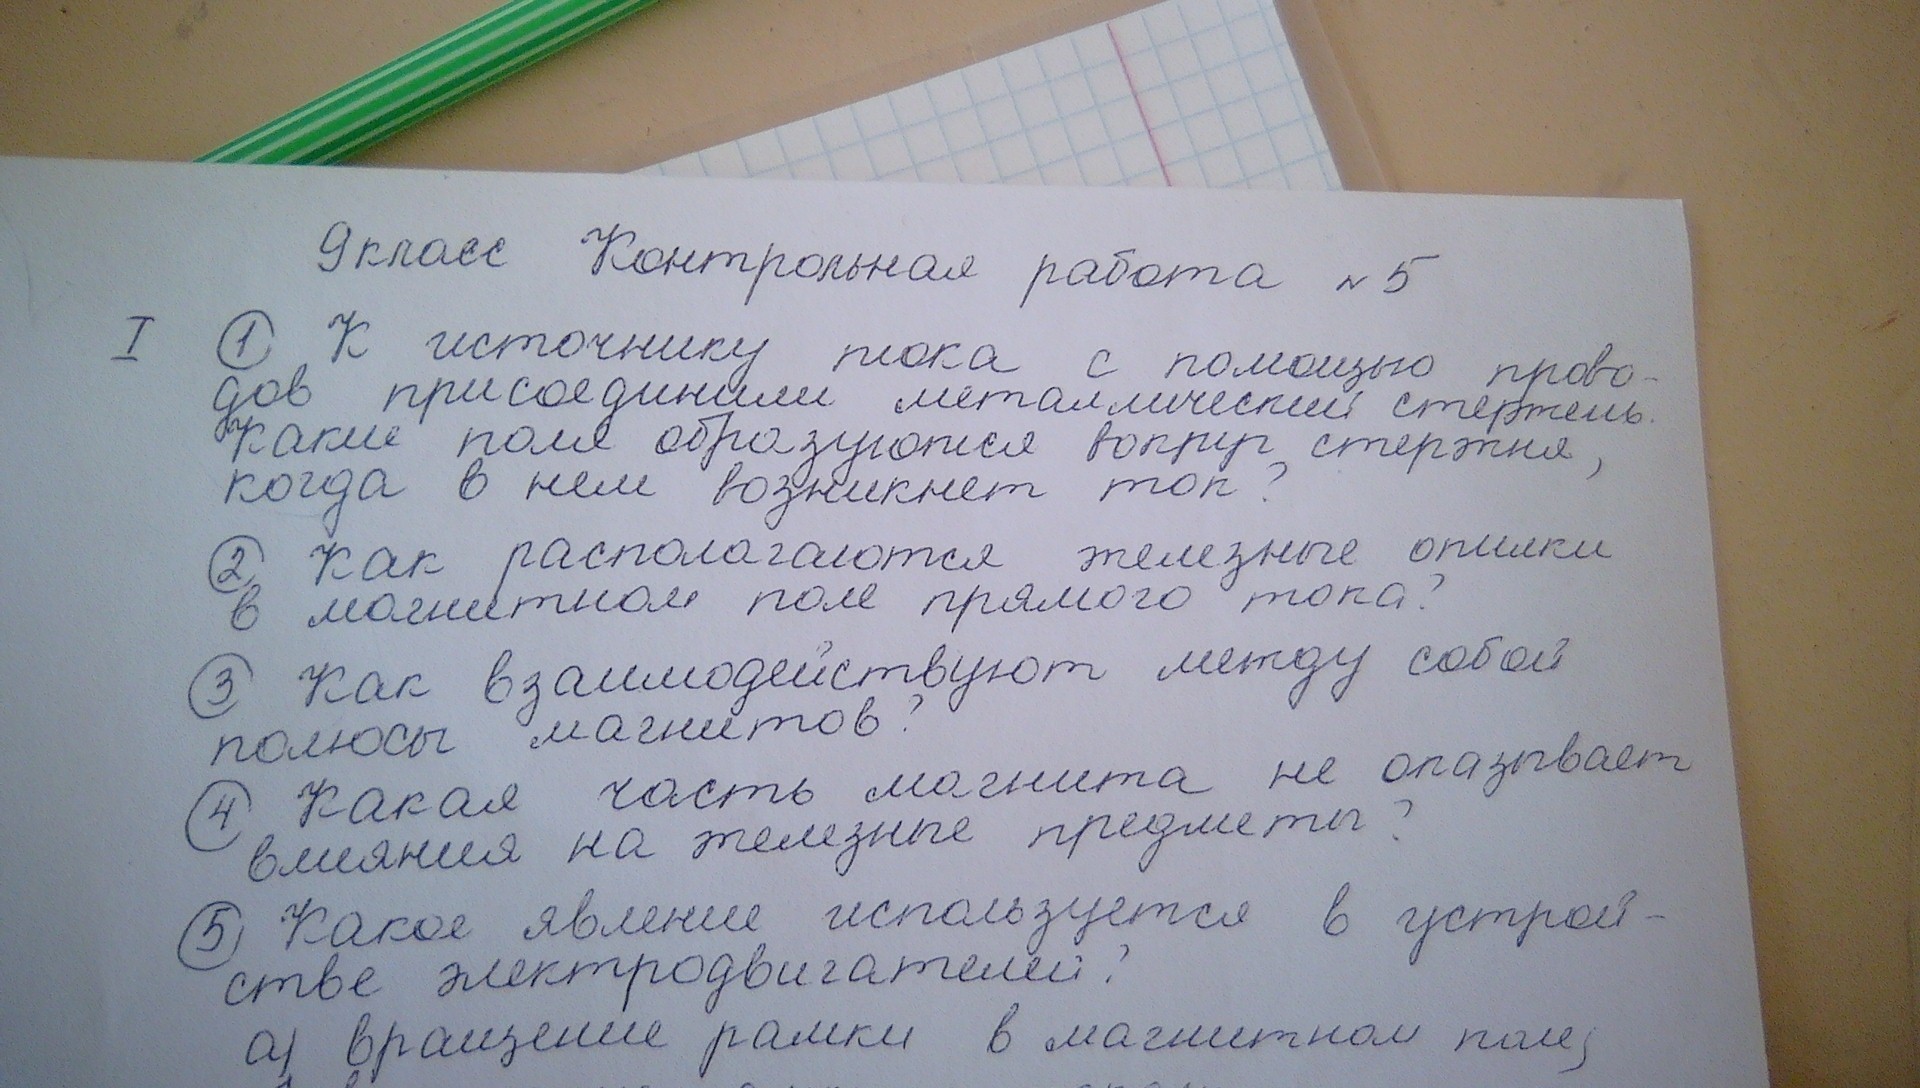 9класс Контрольная работа №5
I ① К источнику тока с помощью прово-
дов присоединили металлический стержень.
Какие поля образуются вокруг стержня,
когда в нем возникнет ток?
② Как располагаются железные опилки
в магнитном поле прямого тока?
③ Как взаимодействуют между собой
полюсы магнитов?
④ Какая часть магнита не оказывает
влияния на железные предметы?
⑤ Какое явление используется в устрой-
стве электродвигателей?
а) вращение рамки в магнитном поле;